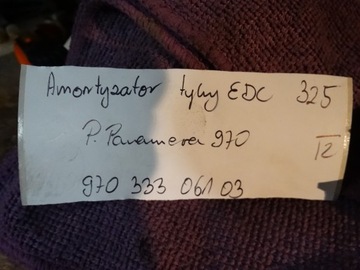 Amortyzator tylny EDC 325
P. Panamera 970
12
970 333 061 03